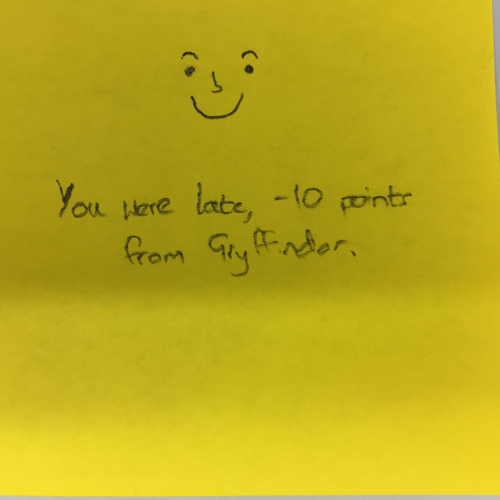 You were late, -10 points
from Gryffindor.